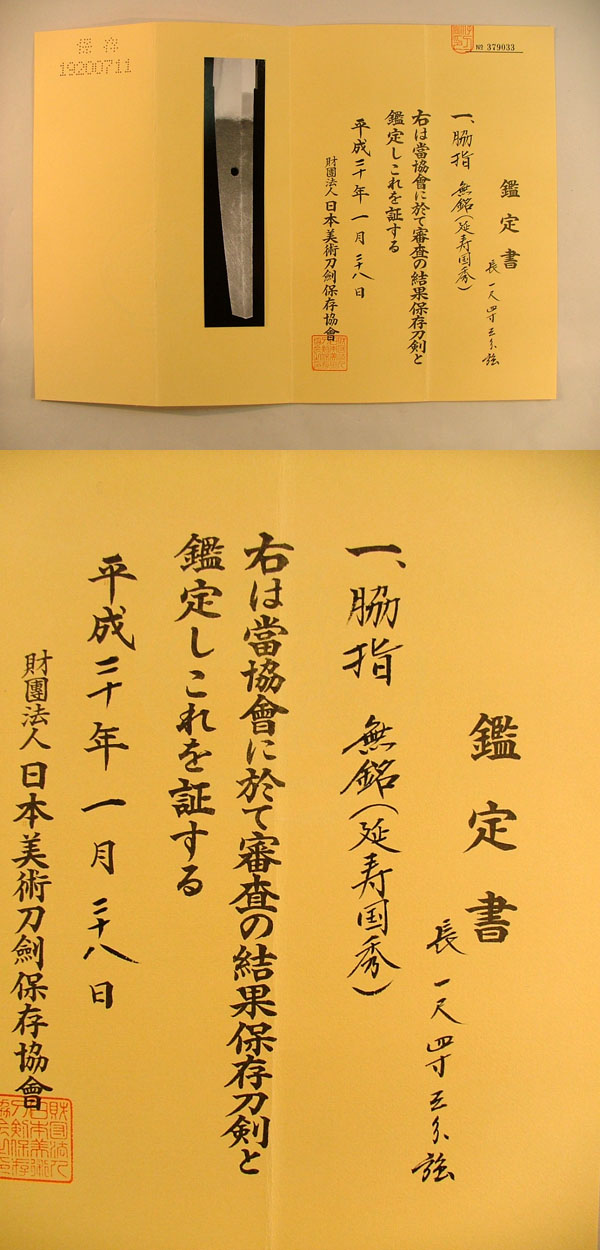 保存
19200711
№ 379033
鑑定書
一、脇指 無銘(延寿国秀)
長一尺四寸五分強
右は當協會に於て審査の結果保存刀剣と
鑑定しこれを証する
平成二十年一月二十八日
財團法人日本美術刀劍保存協會
鑑定書
長一尺四寸五分強
一、脇指 無銘(延寿国秀)
右は當協會に於て審査の結果保存刀剣と
鑑定しこれを証する
平成二十年一月二十八日
財團法人日本美術刀劍保存協會